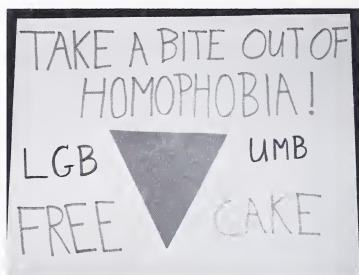 TAKE A BITE OUT OF
HOMOPHOBIA!
LGB UMB
FREE CAKE